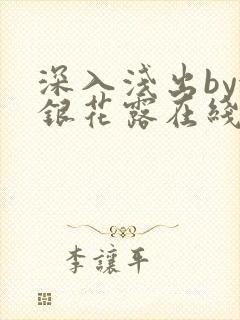 深入浅出by
銀花露在綫
李讓平